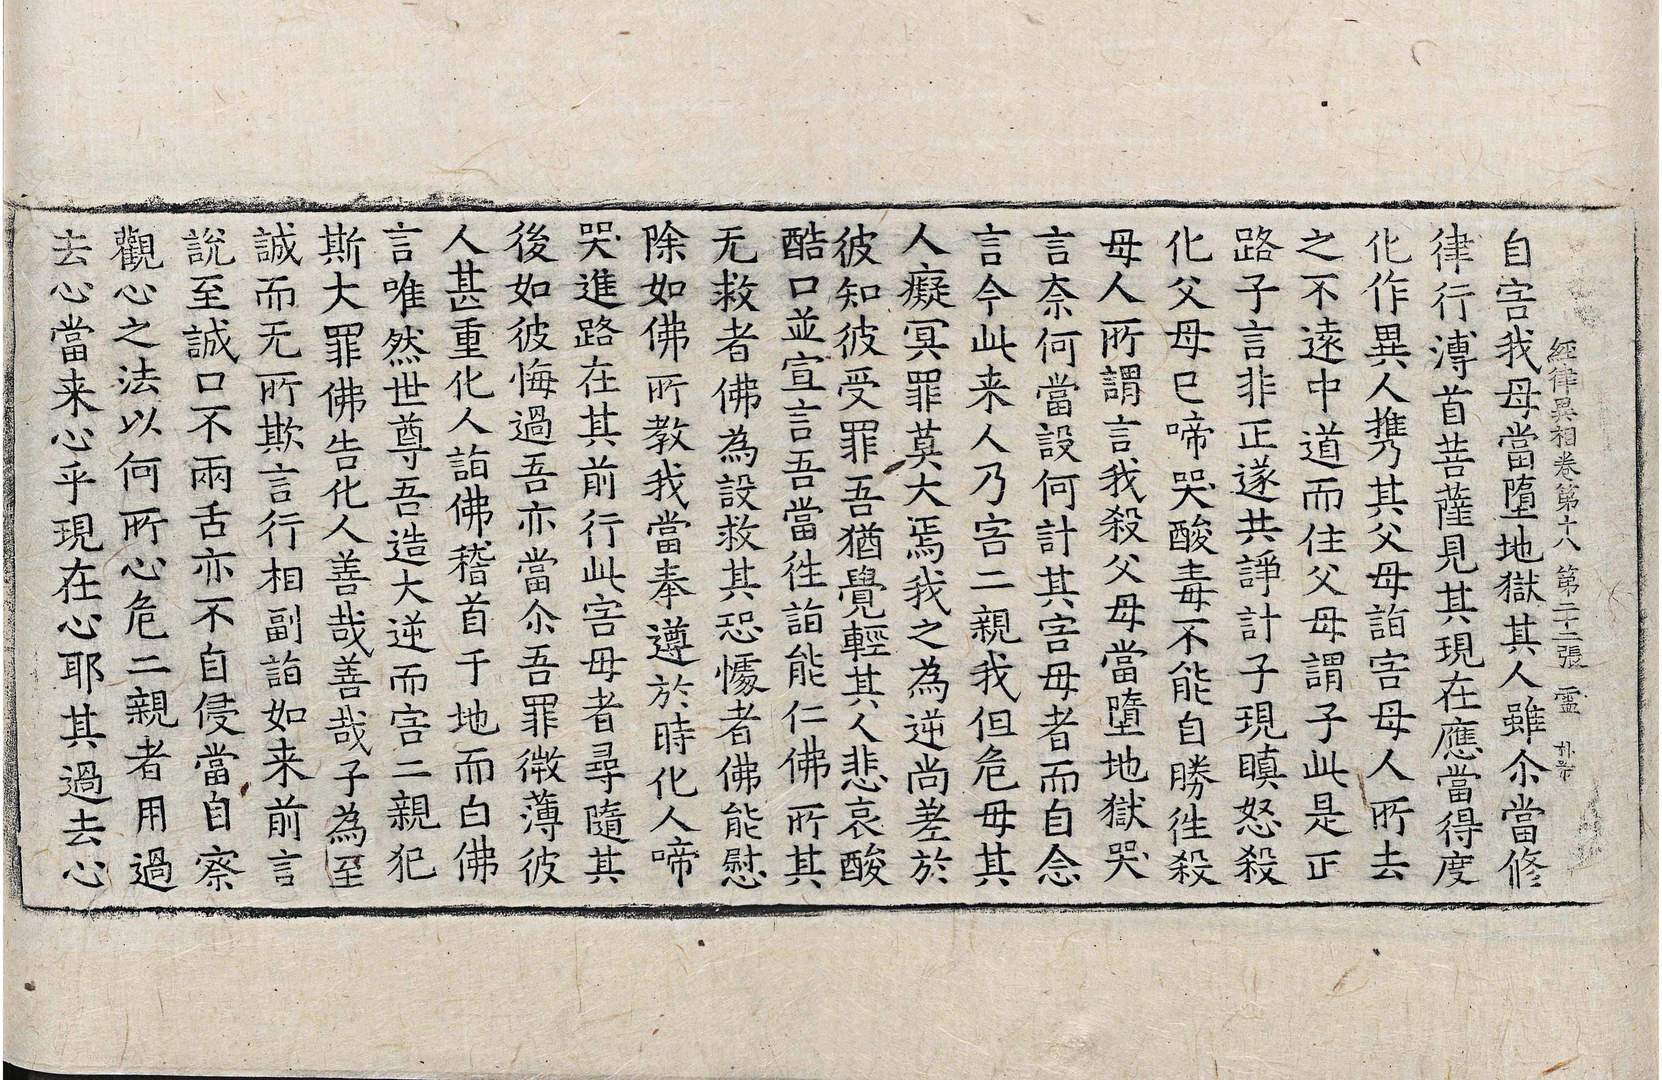 經律異相卷第十八 第二十二張 霊
自害我母當墮地獄其人雖尒當修
律行溥首菩薩見其現在應當得度
化作異人携其父母詣害母人所去
之不遠中道而住父母謂子此是正
路子言非正遂共諍計子現瞋怒殺
化父母已啼哭酸毒不能自勝徃殺
母人所謂言我殺父母當墮地獄哭
言奈何當設何計其害母者而自念
言今此来人乃害二親我但危母其
人癡冥罪莫大焉我之為逆尚差於
彼知彼受罪吾猶覺輕其人悲哀酸
酷口並宣言吾當徃詣能仁佛所其
无救者佛為設救其恐懅者佛能慰
除如佛所教我當奉遵於時化人啼
哭進路在其前行此害母者尋隨其
後如彼悔過吾亦當尒吾罪微薄彼
人甚重化人詣佛稽首于地而白佛
言唯然世尊吾造大逆而害二親犯
斯大罪佛告化人善哉善哉子為至
誠而无所欺言行相副詣如来前言
說至誠口不兩舌亦不自侵當自察
觀心之法以何所心危二親者用過
去心當来心乎現在心耶其過去心